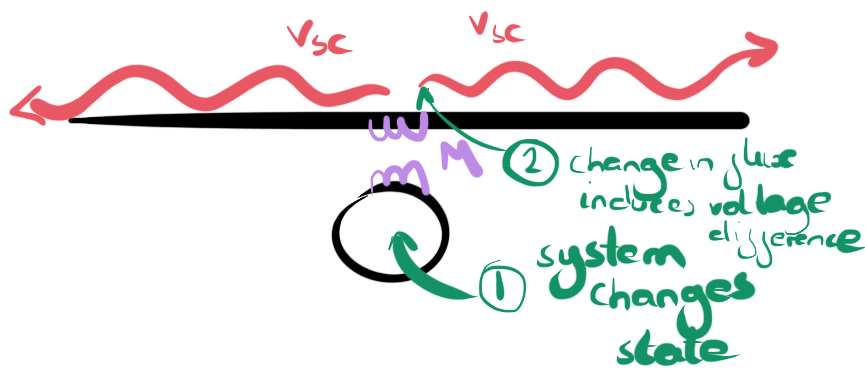 Vsc
Vsc
M
2 change in flux
induces voltage
difference
1 system
changes
state